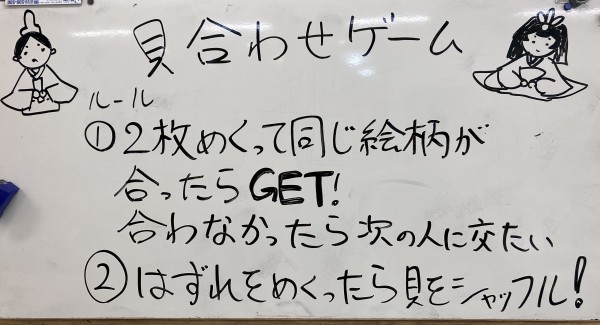 貝合わせゲーム
ルール
①2枚めくって同じ絵柄が
合ったらGET!
合わなかったら次の人に交たい
②はずれをめくったら貝をシャッフル!